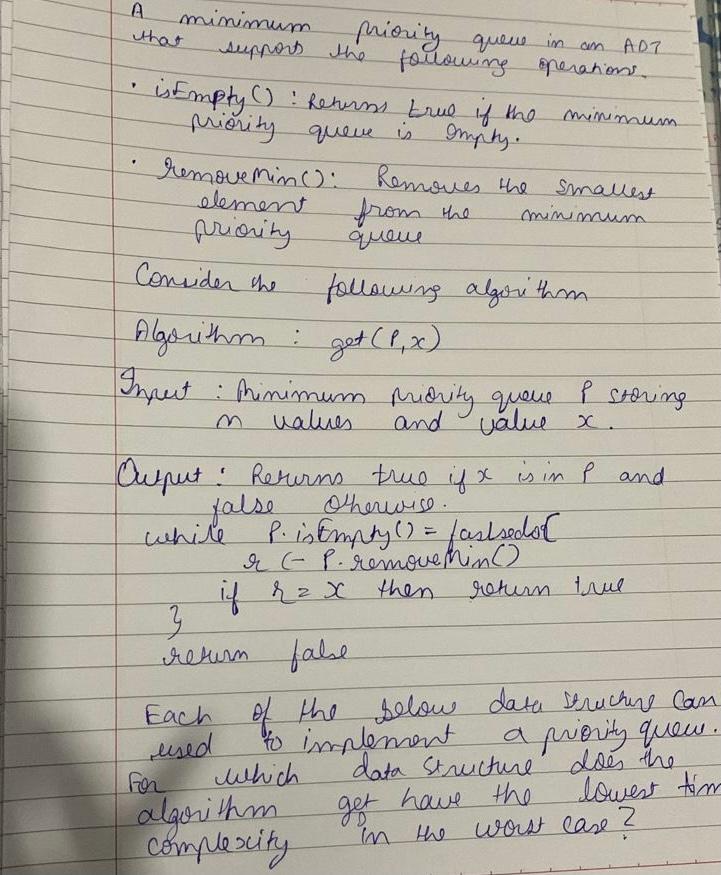 A minimum priority queue in an ADT
that support the following operations.
· isEmpty() : Returns true if the minimum
priority queue is empty.
· removeMin(): Removes the smallest
element from the minimum
priority queue
Consider the following algorithm
Algorithm : get(P,x)
Input : Minimum priority queue P storing
n values and value x.
Output : Returns true if x is in P and
false otherwise.
while P.isEmpty() = do{
r <- P.removeMin()
if r = x then return true
}
return false
Each of the below data structure can
used to implement a priority queue.
For which data structure does the
algorithm get have the lowest tim
complexity in the worst case?